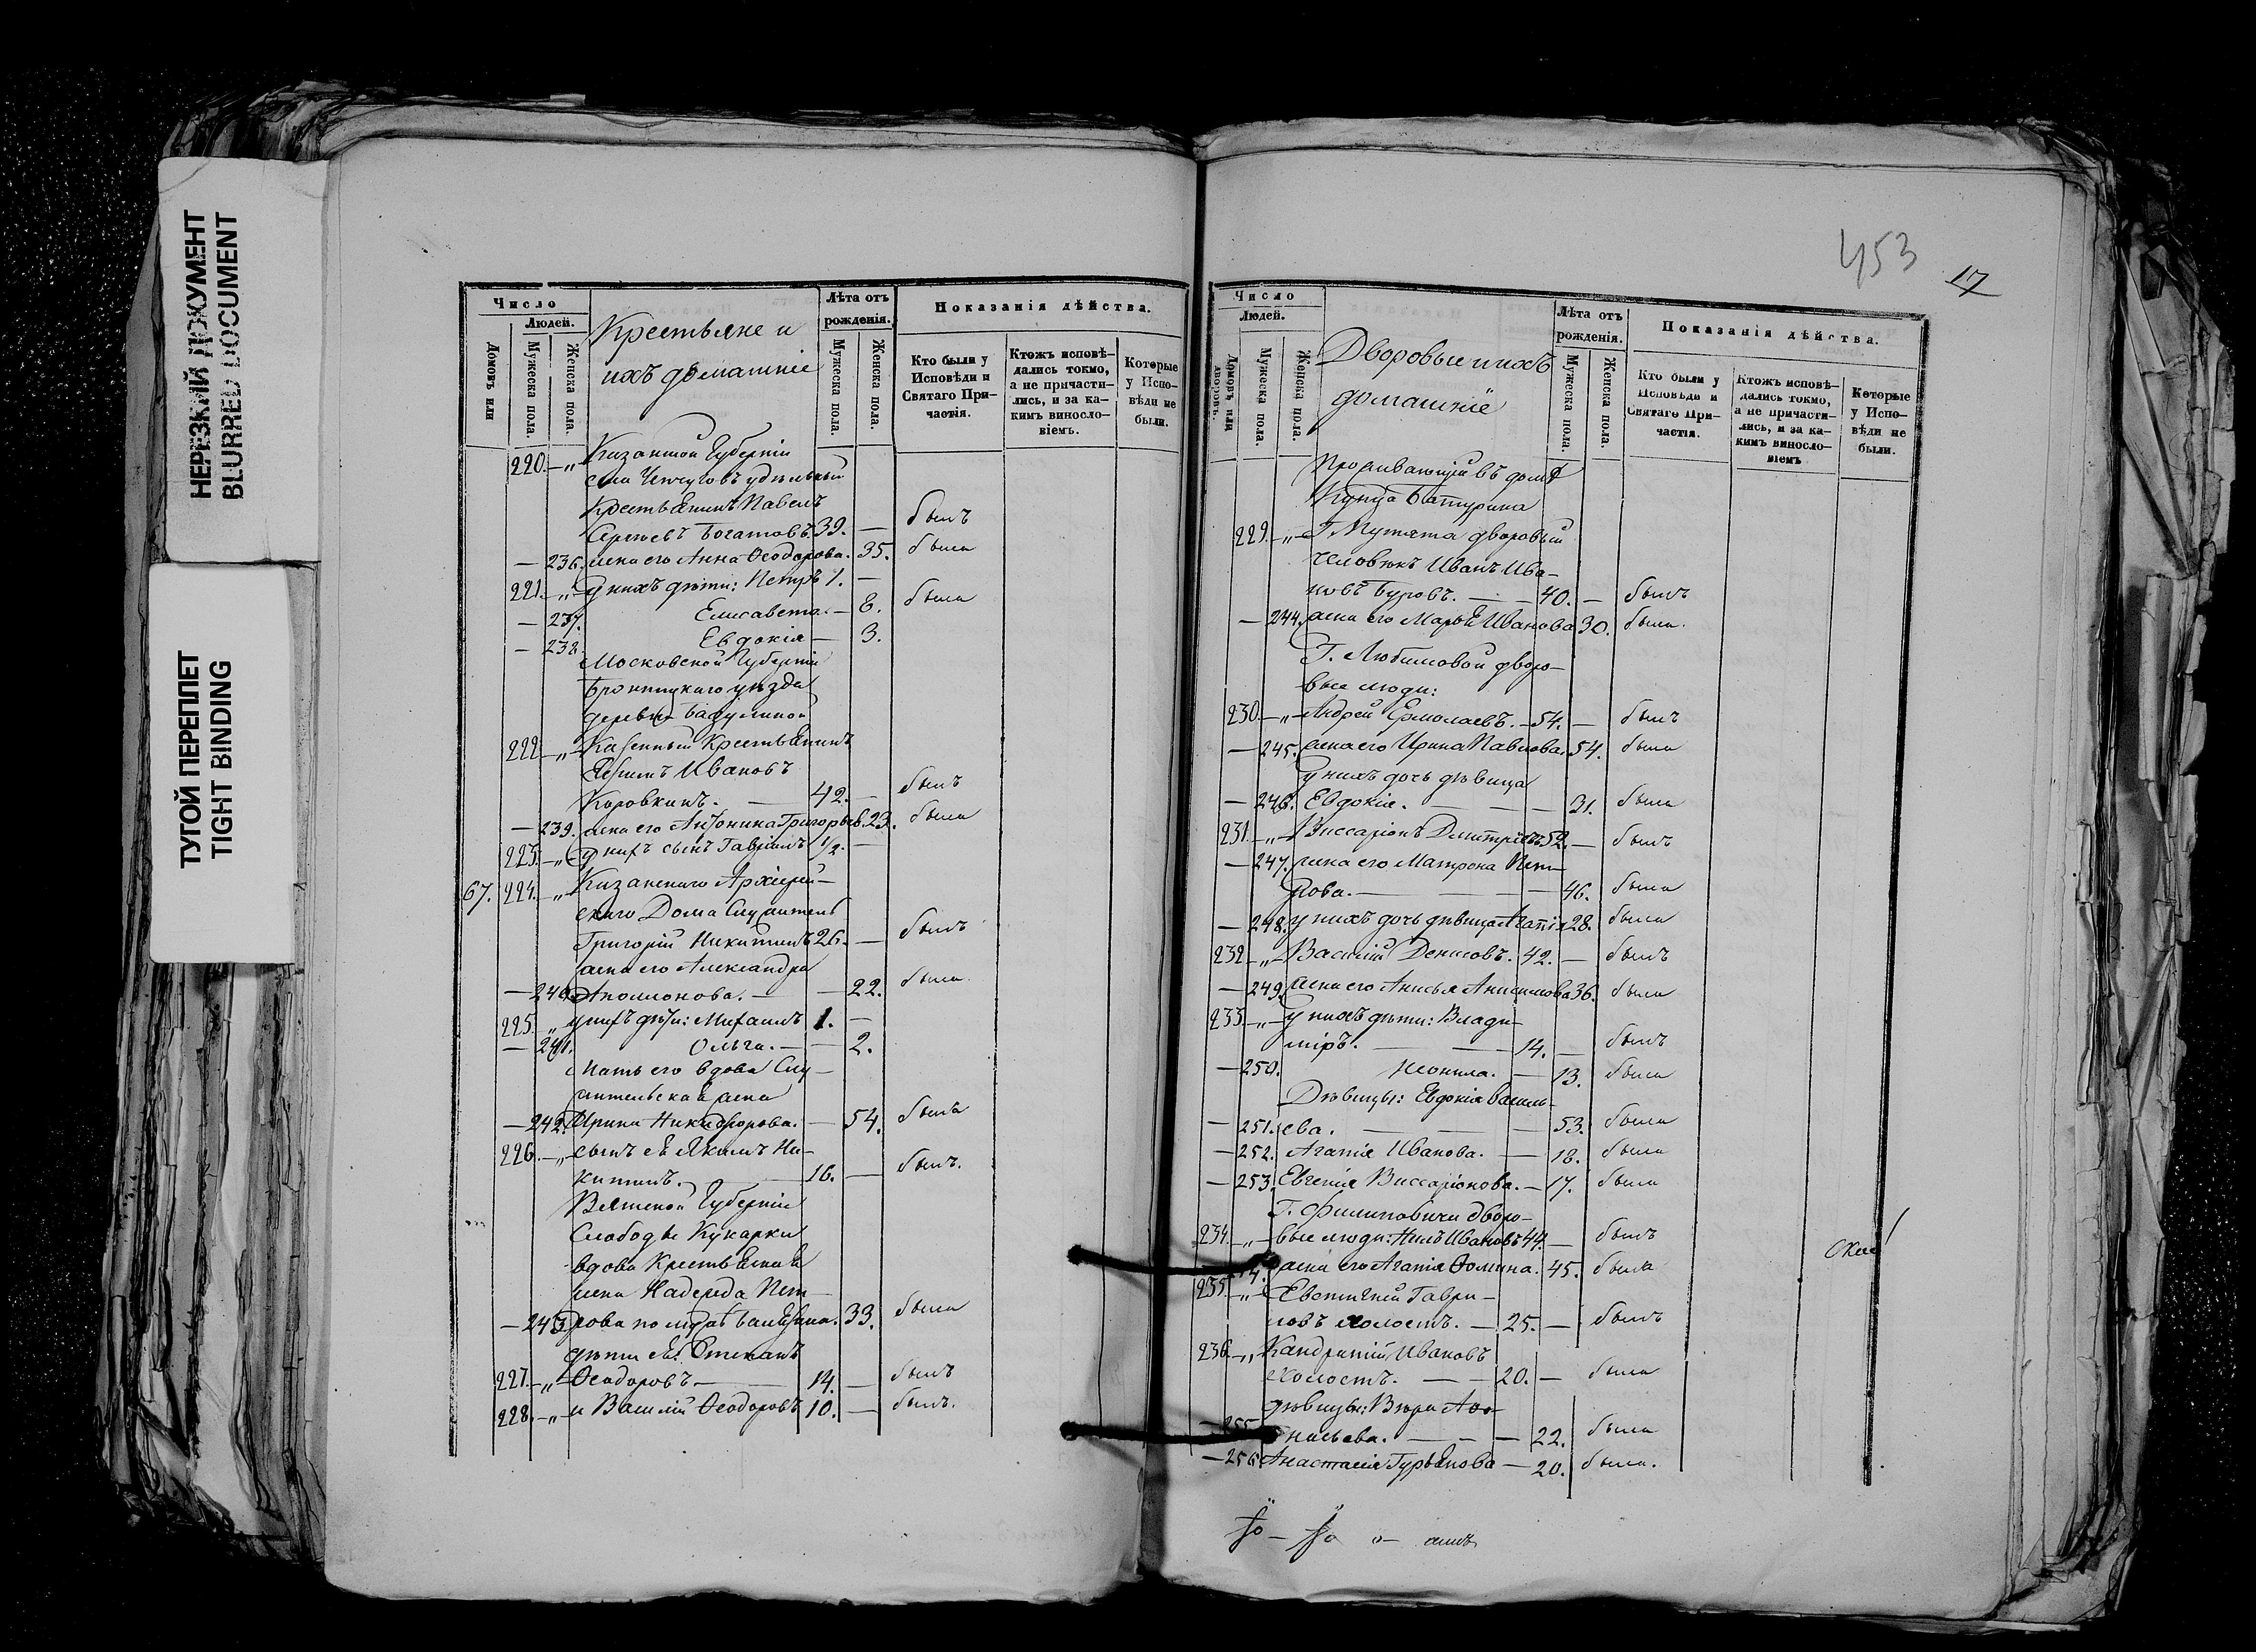 НЕРЕЗКИЙ ДОКУМЕНТ
BLURRED DOCUMENT
ТУГОЙ ПЕРЕПЛЕТ
TIGHT BINDING
Число
Людей.
Домовъ или
Мужеска пола.
Женска пола.
Крестьяне и
ихъ домашніе
Лѣта отъ
рожденія.
Мужеска пола.
Женска пола.
Показанія дѣйства.
Кто были у
Исповѣди и
Святаго При-
частія.
Ктожъ исповѣ-
дались токмо,
а не причасти-
лись, и за ка-
кимъ виносло-
віемъ.
Которые
у Испо-
вѣди не
были.
220. — „ Казанской Губерніи
села удѣльный
крестьянинъ Павелъ
Сергѣевъ Богатовъ. 39. — былъ
— 236. жена его Анна Ѳеодорова. 35. была
221. — „ у нихъ дѣти: Петръ 1. —
— 237. Елисавета. — 6. была
— 238. Евдокія — 3.
Московской Губерніи
Бронницкаго уѣзда
деревни
222. — „ Казенный Крестьянинъ
Иванов
Коровкинъ. — 42. — былъ
— 239. жена его Антонина Григорьев. 23. была
223. — „ у нихъ сынъ Гавріилъ 1/2. —
67. 224. — „ Казанскаго Архіерей-
скаго Дома Служитель
Григорій Никитинъ 26. — былъ
жена его Александра
— 240. Аполлонова. — — 22. была
225. „ у нихъ дѣти: Михаилъ 1. —
— 241. Ольга. — — 2.
Мать его вдова Слу-
жительская жена
— 242. Ирина Никифорова. — 54. была
226. — „ сынъ ея Якимъ Ни-
китинъ. — 16. — былъ.
Вятской Губерніи
Слободы Кукарки
вдова Крестьянская
жена Надежда Пет-
— 243. рова по мужѣ 33. была
дѣти ея: Степанъ
227. — „ Ѳеодоровъ — 14. — былъ
228. — „ и Василій Ѳеодоровъ 10. — былъ.
453
17
Число
Людей.
Домовъ или
дворовъ.
Мужеска пола.
Женска пола.
Дворовые и ихъ
домашніе
Лѣта отъ
рожденія.
Мужеска пола.
Женска пола.
Показанія дѣйства.
Кто были у
Исповѣди и
Святаго При-
частія.
Ктожъ исповѣ-
дались токмо,
а не причасти-
лись, и за ка-
кимъ виносло-
віемъ
Которые
у Испо-
вѣди не
были.
Проживающій въ домѣ
Купца Батурина
229. — „ Г. Путята дворовый
человѣкъ Иванъ Ива-
новъ Буровъ. — 40. — былъ
— 244. жена его Марья Иванова 30. была.
Г. Любимовой дворо-
вые люди:
230. — „ Андрей Ермолаевъ. — 54. — былъ
— 245. жена его Ирина Павлова. 54. была
у нихъ дочь дѣвица
— 246. Евдокія. — — 31. была
231. — „ Виссаріонъ Дмитріевъ 52. — былъ
— 247. жена его Матрона Пет-
рова. — — 46. была
— 248. у нихъ дочь дѣвица Агапія 28. была
232. — „ Василій Денисовъ. 42. — былъ
— 249. жена его Анисья Анисимова 36. была
233. — „ у нихъ дѣти: Влади-
міръ. — 14. — былъ
— 250. Неонила. — 13. была
Дѣвицы: Евдокія Василь-
— 251. ева. — — 53. была
— 252. Агапія Иванова. — 18. была
— 253. Евгенія Виссаріонова. — 17. была
Г. Филиповича дворо-
234. — „ вые люди: Нилъ Ивановъ 44. — былъ
4. жена его Агапія Ѳомина. 45. была
235. — „ Евстигней Гаври-
ловъ холостъ. — 25. — былъ
236. — „ Кандратій Ивановъ
холостъ. — 20. — была
дѣвицы: Вѣра Аѳа-
— 255. насьева. — — 22. была
— 256. Анастасія Гурьянова — 20. была.